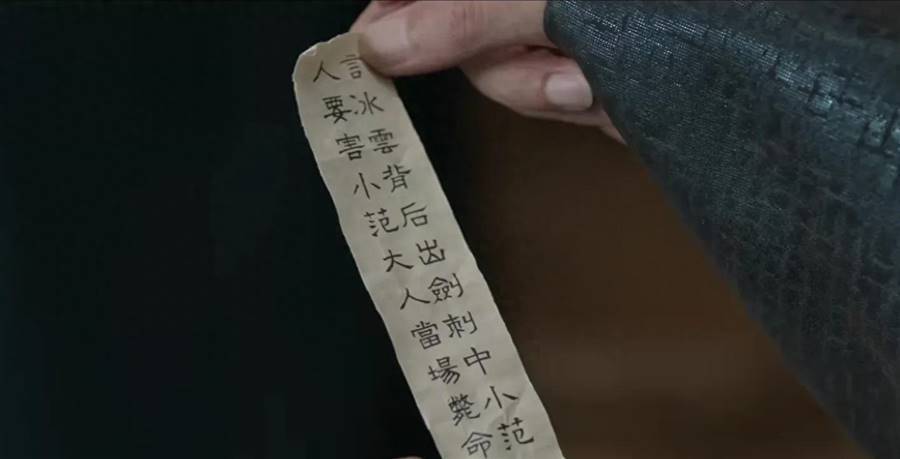 言冰雲背后出劍刺中小范
人要害小范大人當場斃命